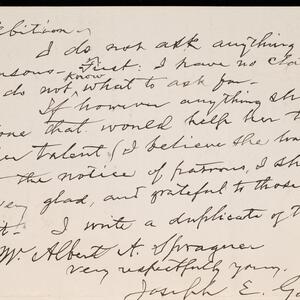 bition.
I do not ask anything
sons. First: I have no cla
do not know what to ask for.
If however anything sh
one that would help her t
er talent (I believe she ha
the notice of patrons, I sh
very glad, and grateful to those
it. I write a duplicate of t
Mr Albert A. Sprague
very respectfully yours.
Joseph E. Ga